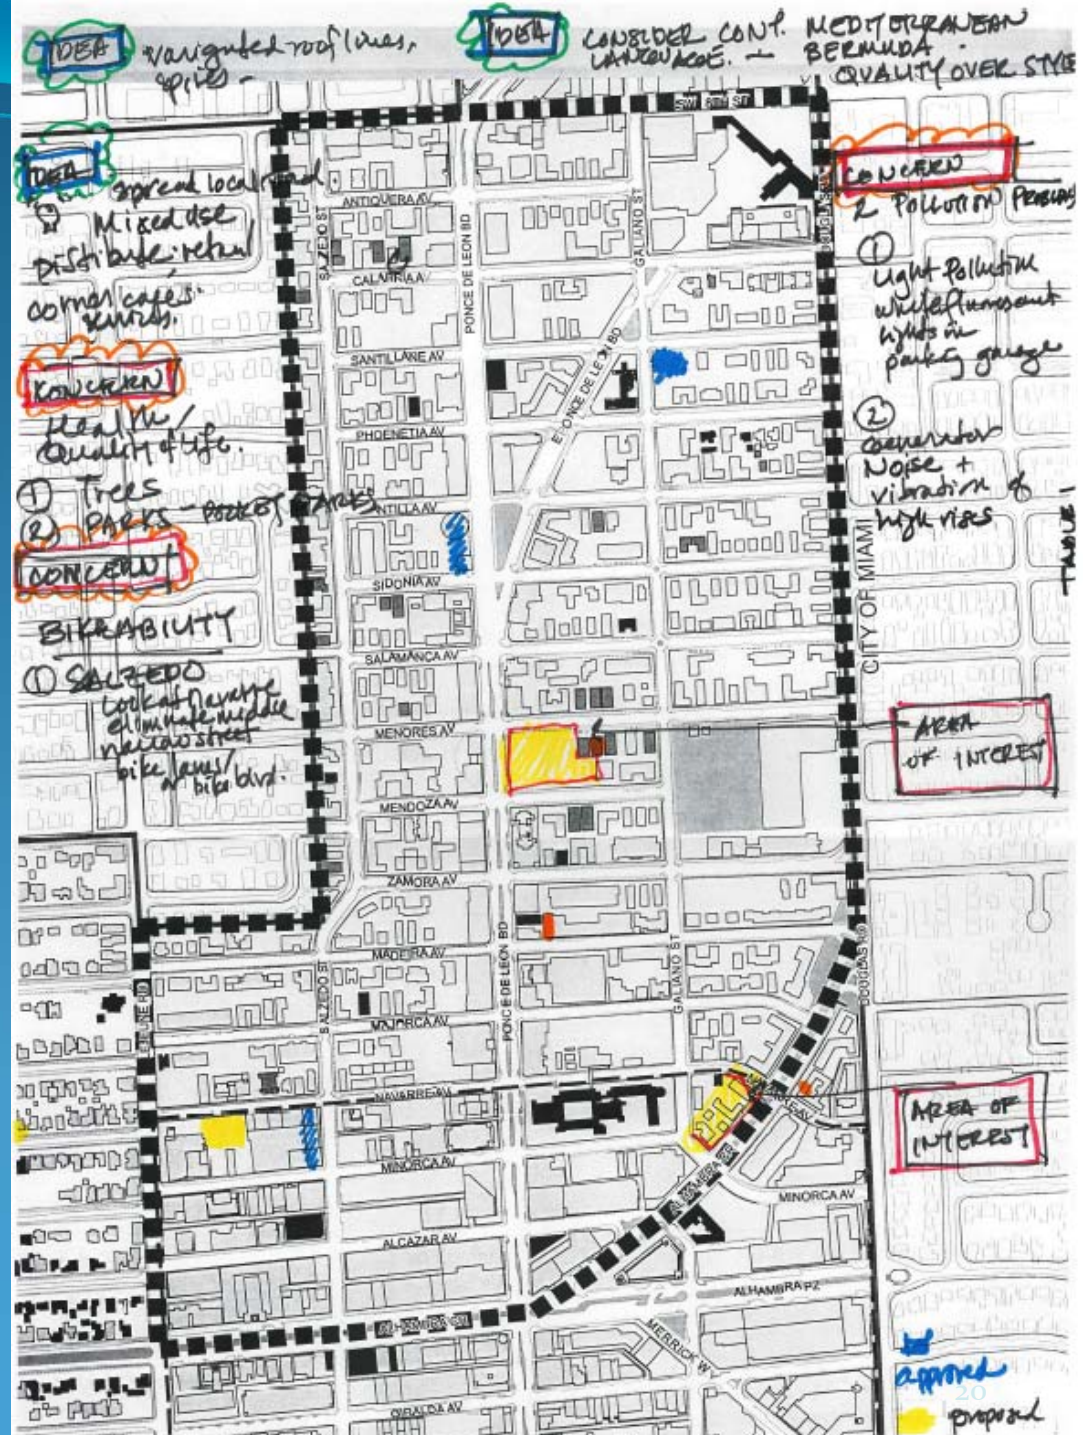 IDEA
variegated rooflines,
spires -
IDEA
CONSIDER CONT. MEDITERRANEAN
LANGUAGE. - BERMUDA -
QUALITY OVER STYLE
IDEA
spread local
Mixed use
Distribute retail
corner cafes.
services.
CONCERN
Health/
Quality of life.
① Trees
② PARKS - POCKET PARKS
CONCERN
BIKEABILITY
① SALZEDO
Look at Navarre
eliminate middle
narrow street
bike lanes/
bike blvd.
CONCERN
2 POLLUTION PROBLEMS
①
Light Pollution
white fluorescent
lights in
parking garage
②
Generator
Noise +
vibration of
high rises
TABLE -
CITY OF MIAMI
AREA
OF INTEREST
AREA OF
INTEREST
SW 8TH ST
ANTIQUERA AV
CALABRIA AV
SANTILLANE AV
PHOENETIA AV
ANTILLA AV
SIDONIA AV
SALAMANCA AV
MENORES AV
MENDOZA AV
ZAMORA AV
MADEIRA AV
MAJORCA AV
NAVARRE AV
NAVARRE AV
MINORCA AV
MINORCA AV
ALCAZAR AV
ALHAMBRA CR
ALHAMBRA CR
ALHAMBRA PZ
MERRICK WY
GIRALDA AV
SALZEDO ST
SALZEDO ST
PONCE DE LEON BD
PONCE DE LEON BD
E PONCE DE LEON BD
GALIANO ST
GALIANO ST
DOUGLAS RD
DOUGLAS RD
LE JEUNE RD
approved
20
proposed